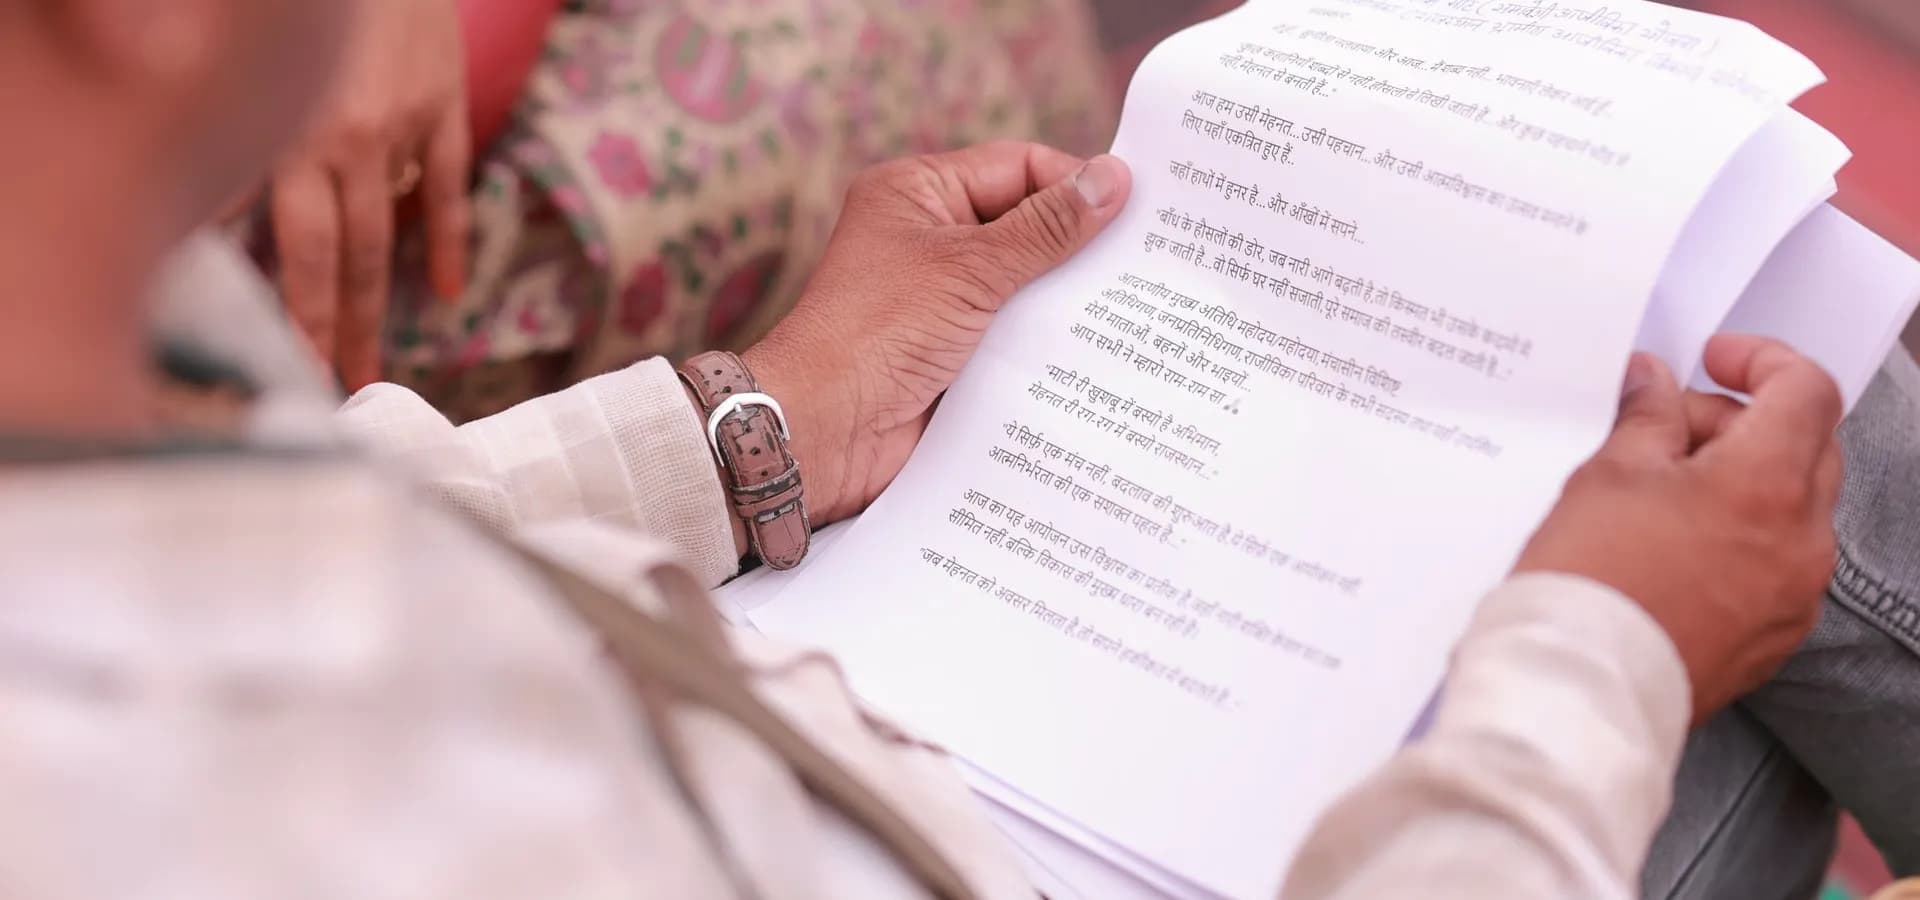 आजीविका योजना )
ग्रामीण आजीविका विकास परिषद
और आज... मैं शब्द नहीं... भावनाएँ लेकर आई हूँ...
"कुछ कहानियाँ शब्दों से नहीं,हौसलों से लिखी जाती हैं... और कुछ पहचानें भीड़ से
नहीं, मेहनत से बनती हैं..."
आज हम उसी मेहनत... उसी पहचान... और उसी आत्मविश्वास का उत्सव मनाने के
लिए यहाँ एकत्रित हुए हैं..
जहाँ हाथों में हुनर है...और आँखों में सपने...
"बाँध के हौसलों की डोर, जब नारी आगे बढ़ती है,तो किस्मत भी उसके कदमों में
झुक जाती है...वो सिर्फ घर नहीं सजाती,पूरे समाज की तस्वीर बदल जाती है..."
आदरणीय मुख्य अतिथि महोदय/महोदया,मंचासीन विशिष्ट
अतिथिगण,जनप्रतिनिधिगण,राजीविका परिवार के सभी सदस्य तथा यहाँ उपस्थित
मेरी माताओं, बहनों और भाइयों...
आप सभी ने म्हारो राम-राम सा
"माटी री खुशबू में बस्यो है अभिमान,
मेहनत री रग-रग में बस्यो राजस्थान..."
"ये सिर्फ़ एक मंच नहीं, बदलाव की शुरुआत है,ये सिर्फ एक आयोजन नहीं,
आत्मनिर्भरता की एक सशक्त पहल है..."
आज का यह आयोजन उस विश्वास का प्रतीक है,जहाँ नारी शक्ति केवल घर तक
सीमित नहीं,बल्कि विकास की मुख्य धारा बन रही है।
"जब मेहनत को अवसर मिलता है,तो सपने हकीकत में बदलते हैं..."